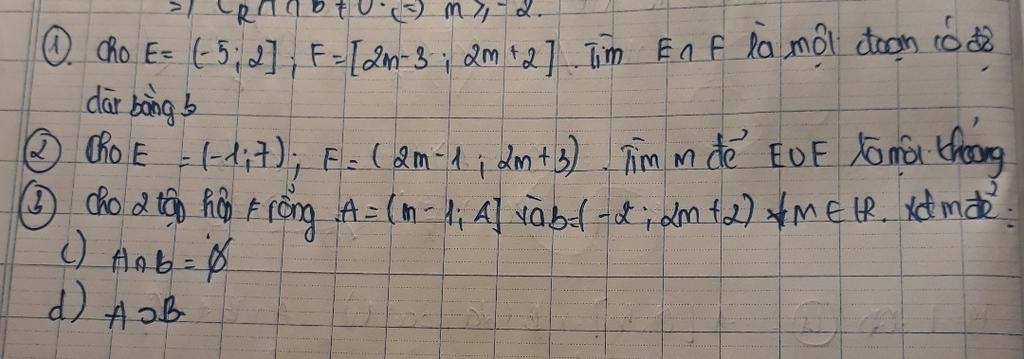 =) C_R A ∩ B ≠ 0. (=) m ≥ -2.
①. Cho E = (-5; 2] ; F = [2m-3 ; 2m+2]. Tìm E ∩ F là một đoạn có độ
dài bằng 5
② Cho E = (-1; 7) ; F = (2m-1 ; 2m+3). Tìm m để E ∪ F là một khoảng
③ Cho 2 tập hợp ≠ rỗng A = (m-1; 4] và b = (-2 ; 2m+2) ∀m ∈ R. xđ m để :
c) A ∩ b = ∅
d) A ⊃ B